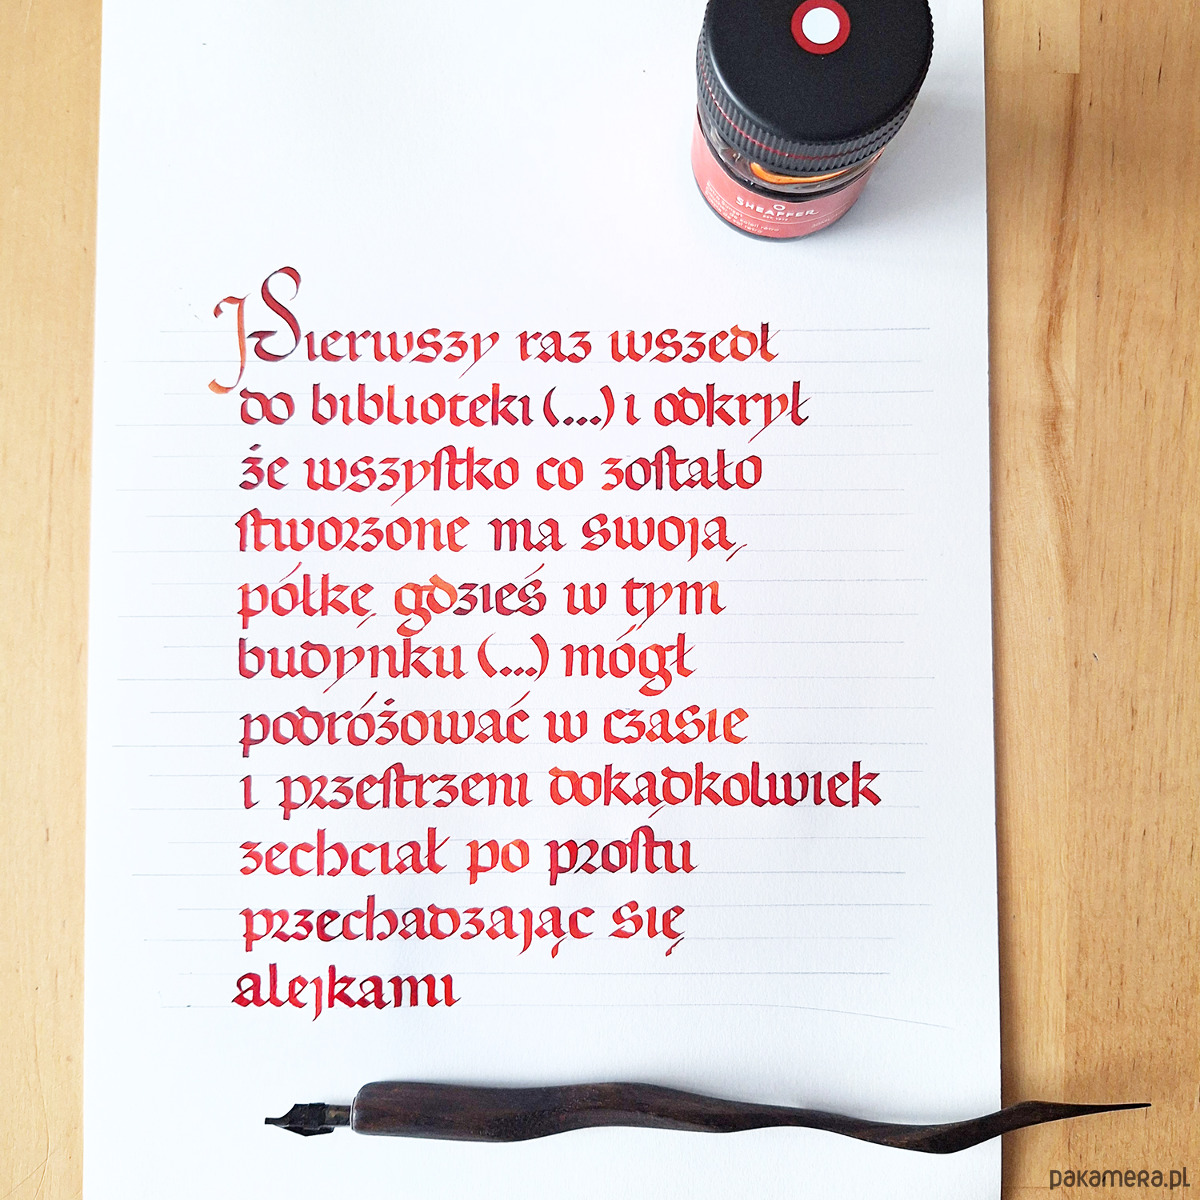 SHEAFFER
Pierwszy raz wszedł
do biblioteki (...) i odkrył
że wszystko co zostało
stworzone ma swoją
półkę gdzieś w tym
budynku (...) mógł
podróżować w czasie
i przestrzeni dokądkolwiek
zechciał po prostu
przechadzając się
alejkami
pakamera.pl